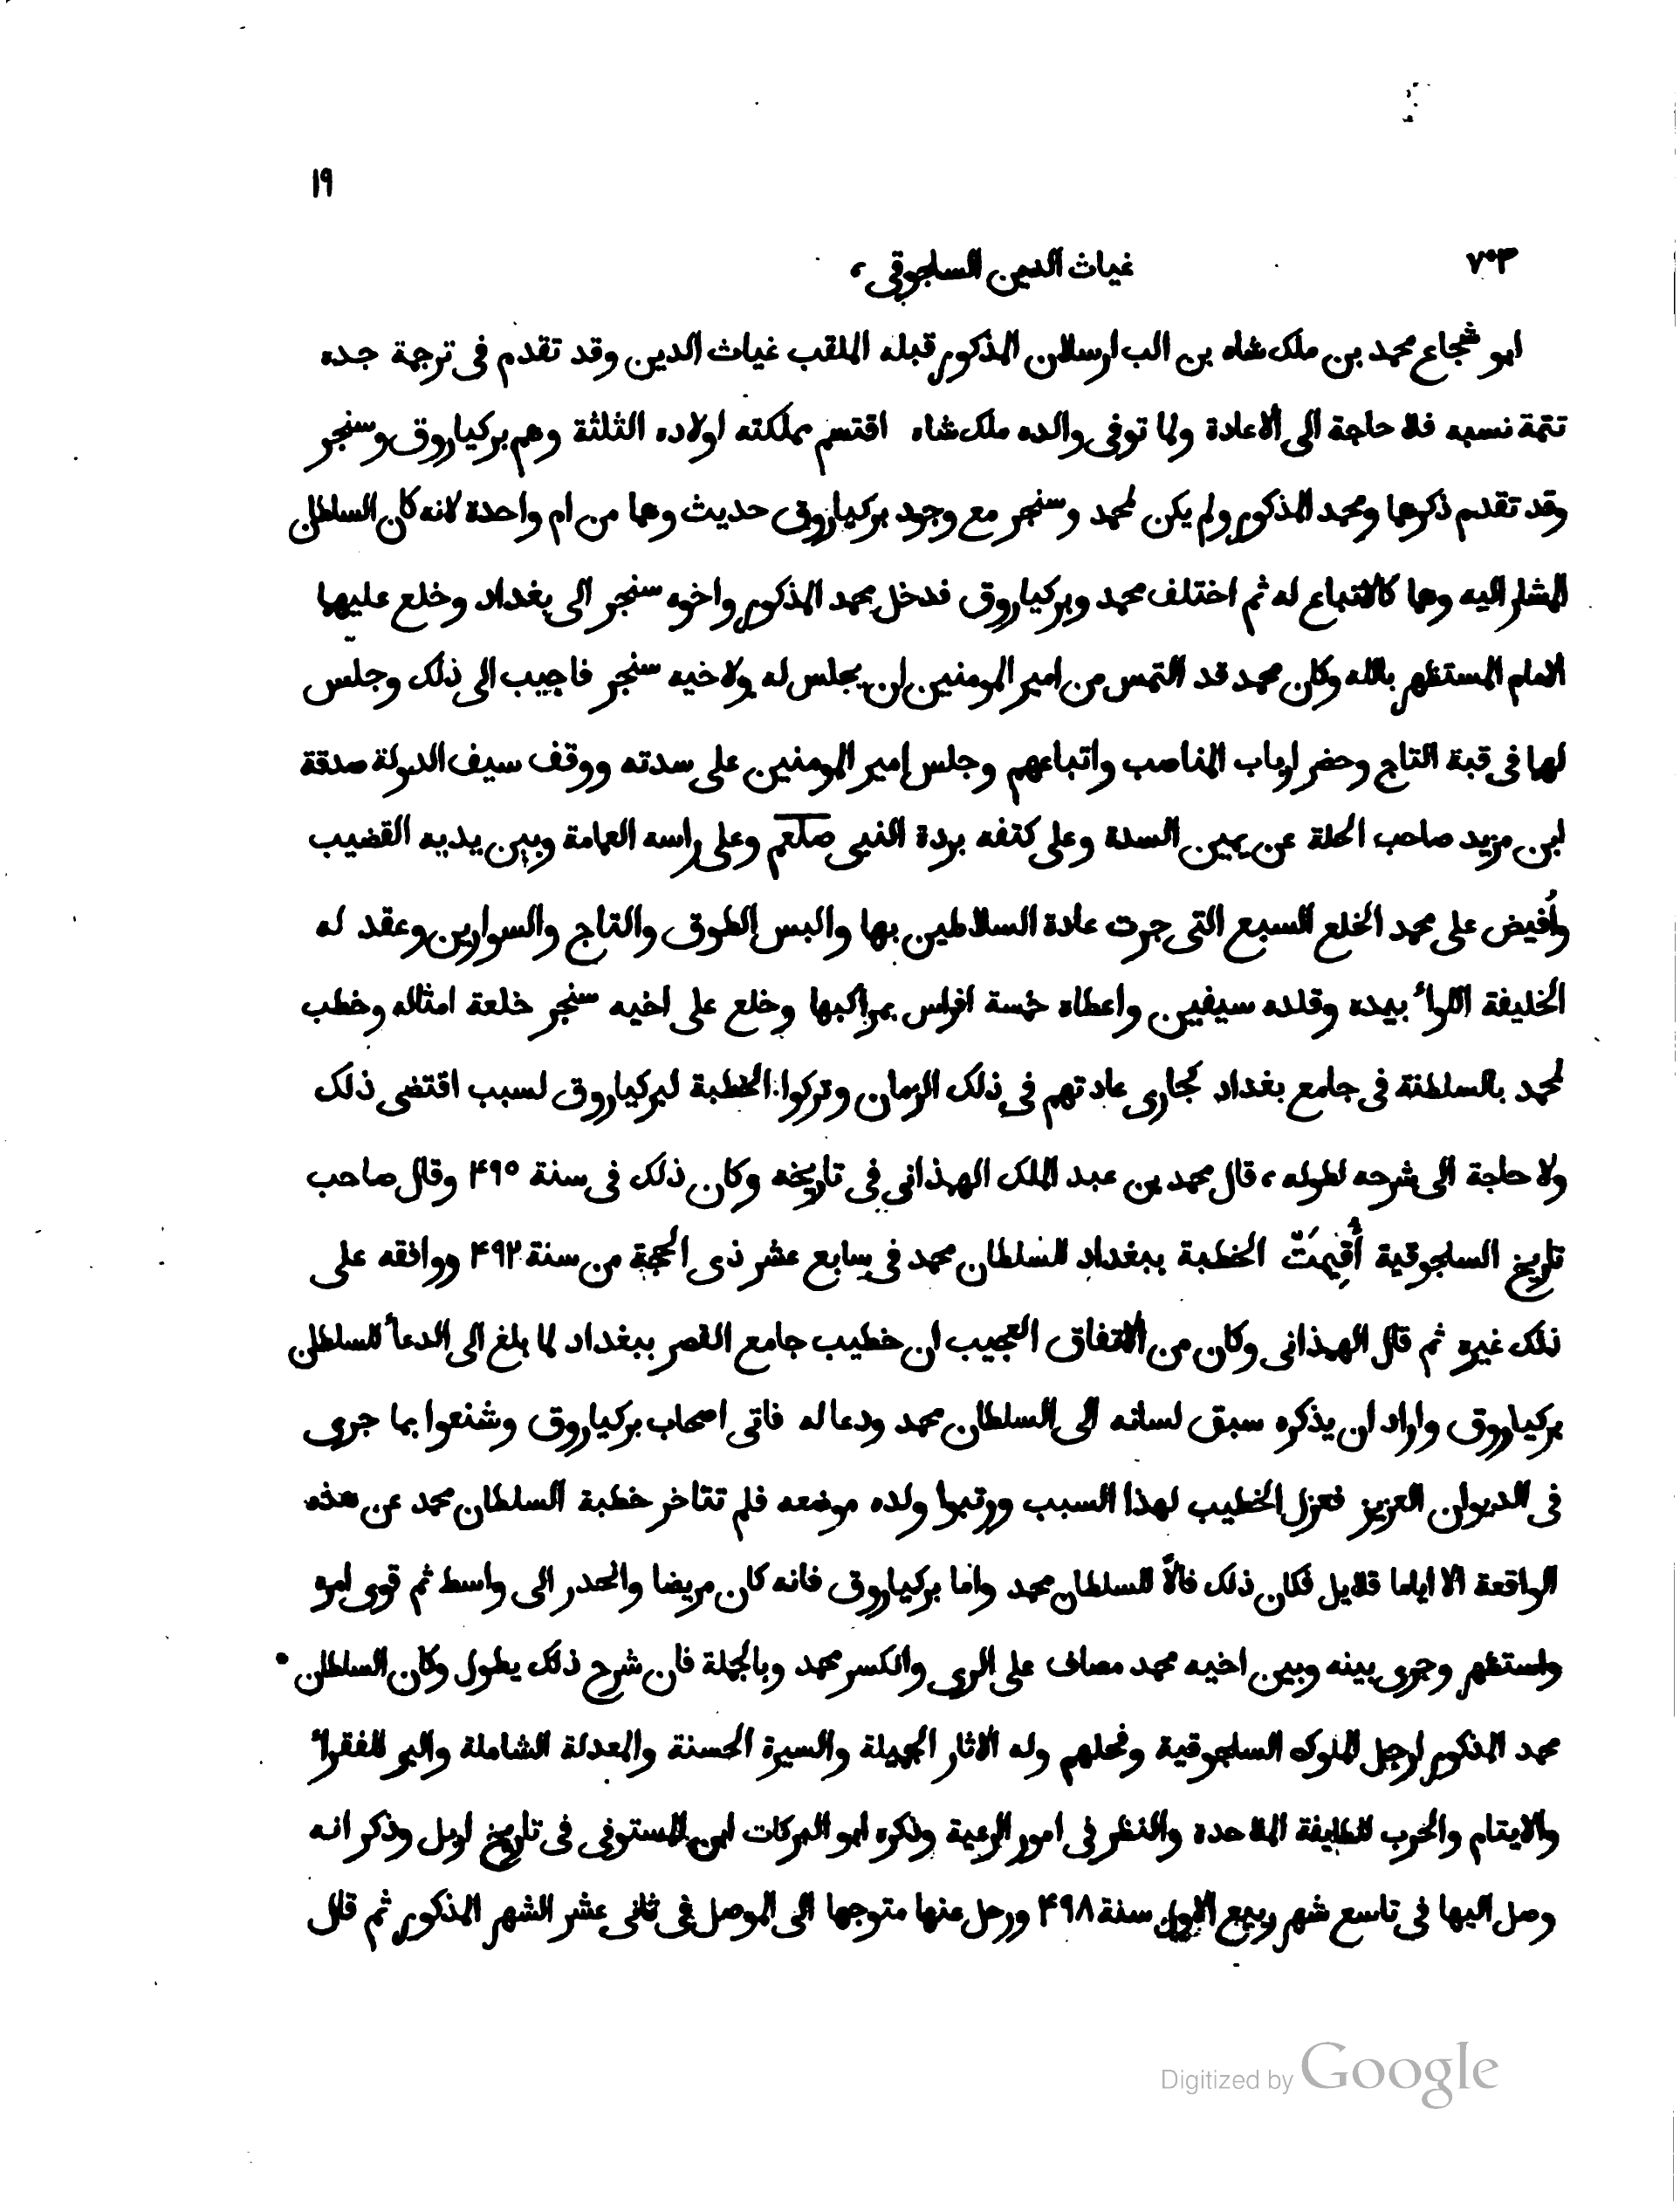 ١٩
٧٠٣ غياث الدين السلجوقى،
ابو شجاع محمد بن ملك شاه بن الب ارسلان المذكور قبله الملقب غياث الدين وقد تقدم فى ترجمة جده
تتمة نسبه فلا حاجة الى الاعادة ولما توفى والده ملك شاه اقتسم مملكته اولاده الثلثة وهم بركياروق وسنجر
وقد تقدم ذكرهما ومحمد المذكور ولم يكن لمحمد وسنجر مع وجود بركياروق حديث وهما من ام واحدة لانه كان السلطان
المشار اليه وهما كالاتباع له ثم اختلف محمد وبركياروق فدخل محمد المذكور واخوه سنجر الى بغداد وخلع عليهما
الامام المستظهر بالله وكان محمد قد التمس من امير المومنين ان يجلس له ولاخيه سنجر فاجيب الى ذلك وجلس
لهما فى قبة التاج وحضر ارباب المناصب واتباعهم وجلس امير المومنين على سدته ووقف سيف الدولة صدقة
ابن مزيد صاحب الحلة عن يمين السدة وعلى كتفه بردة النبى صلعم وعلى راسه العمامة وبين يديه القضيب
وأفيض على محمد الخلع السبع التى جرت عادة السلاطين بها والبس الطوق والتاج والسوارين وعقد له
الخليفة اللواء بيده وقلده سيفين واعطاه خمسة افراس بمراكبها وخلع على اخيه سنجر خلعة امثاله وخطب
لمحمد بالسلطنة فى جامع بغداد كجارى عادتهم فى ذلك الزمان وتركوا الخطبة لبركياروق لسبب اقتضى ذلك
ولا حاجة الى شرحه لطوله، قال محمد بن عبد الملك الهمذانى فى تاريخه وكان ذلك فى سنة ۴٩٥ وقال صاحب
تاريخ السلجوقية أُقِيمَتْ الخطبة ببغداد للسلطان محمد فى سابع عشر ذى الحجة من سنة ۴٩٢ ووافقه على
ذلك غيره ثم قال الهمذانى وكان من الاتفاق العجيب ان خطيب جامع القصر ببغداد لما بلغ الى الدعاء للسلطان
بركياروق واراد ان يذكره سبق لسانه الى السلطان محمد ودعا له فاتى اصحاب بركياروق وشنعوا بما جرى
فى الديوان العزيز فعزل الخطيب لهذا السبب ورتبوا ولده موضعه فلم تتاخر خطبة السلطان محمد عن هذه
الواقعة الا اياما قلايل فكان ذلك فالًا للسلطان محمد واما بركياروق فانه كان مريضا وانحدر الى واسط ثم قوى امره
واستظهر وجرى بينه وبين اخيه محمد مصاف على الرى وانكسر محمد وبالجملة فان شرح ذلك يطول وكان السلطان
محمد المذكور ارجل الملوك السلجوقية وفحلهم وله الاثار الجميلة والسيرة الحسنة والمعدلة الشاملة والبر للفقراء
والايتام والحرب للطايفة الملاحدة والنظر فى امور الرعية وذكره ابو البركات ابن المستوفى فى تاريخ اربل وذكر انه
وصل اليها فى تاسع شهر ربيع الاول سنة ۴٩٨ ورحل عنها متوجها الى الموصل فى ثانى عشر الشهر المذكور ثم قال
Digitized by Google